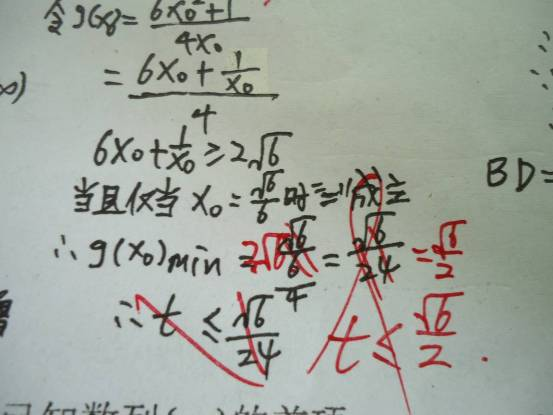 令g(x₀)=\frac{6x₀²+1}{4x₀}
=\frac{6x₀+\frac{1}{x₀}}{4}
6x₀+\frac{1}{x₀}≥2√6
BD=
当且仅当 x₀=\frac{√6}{6}时"="
∴g(x₀)min = \frac{\frac{√6}{6}}{4} = \frac{√6}{24} = \frac{√6}{2}
∴t≤\frac{√6}{24} t≤\frac{√6}{2}.